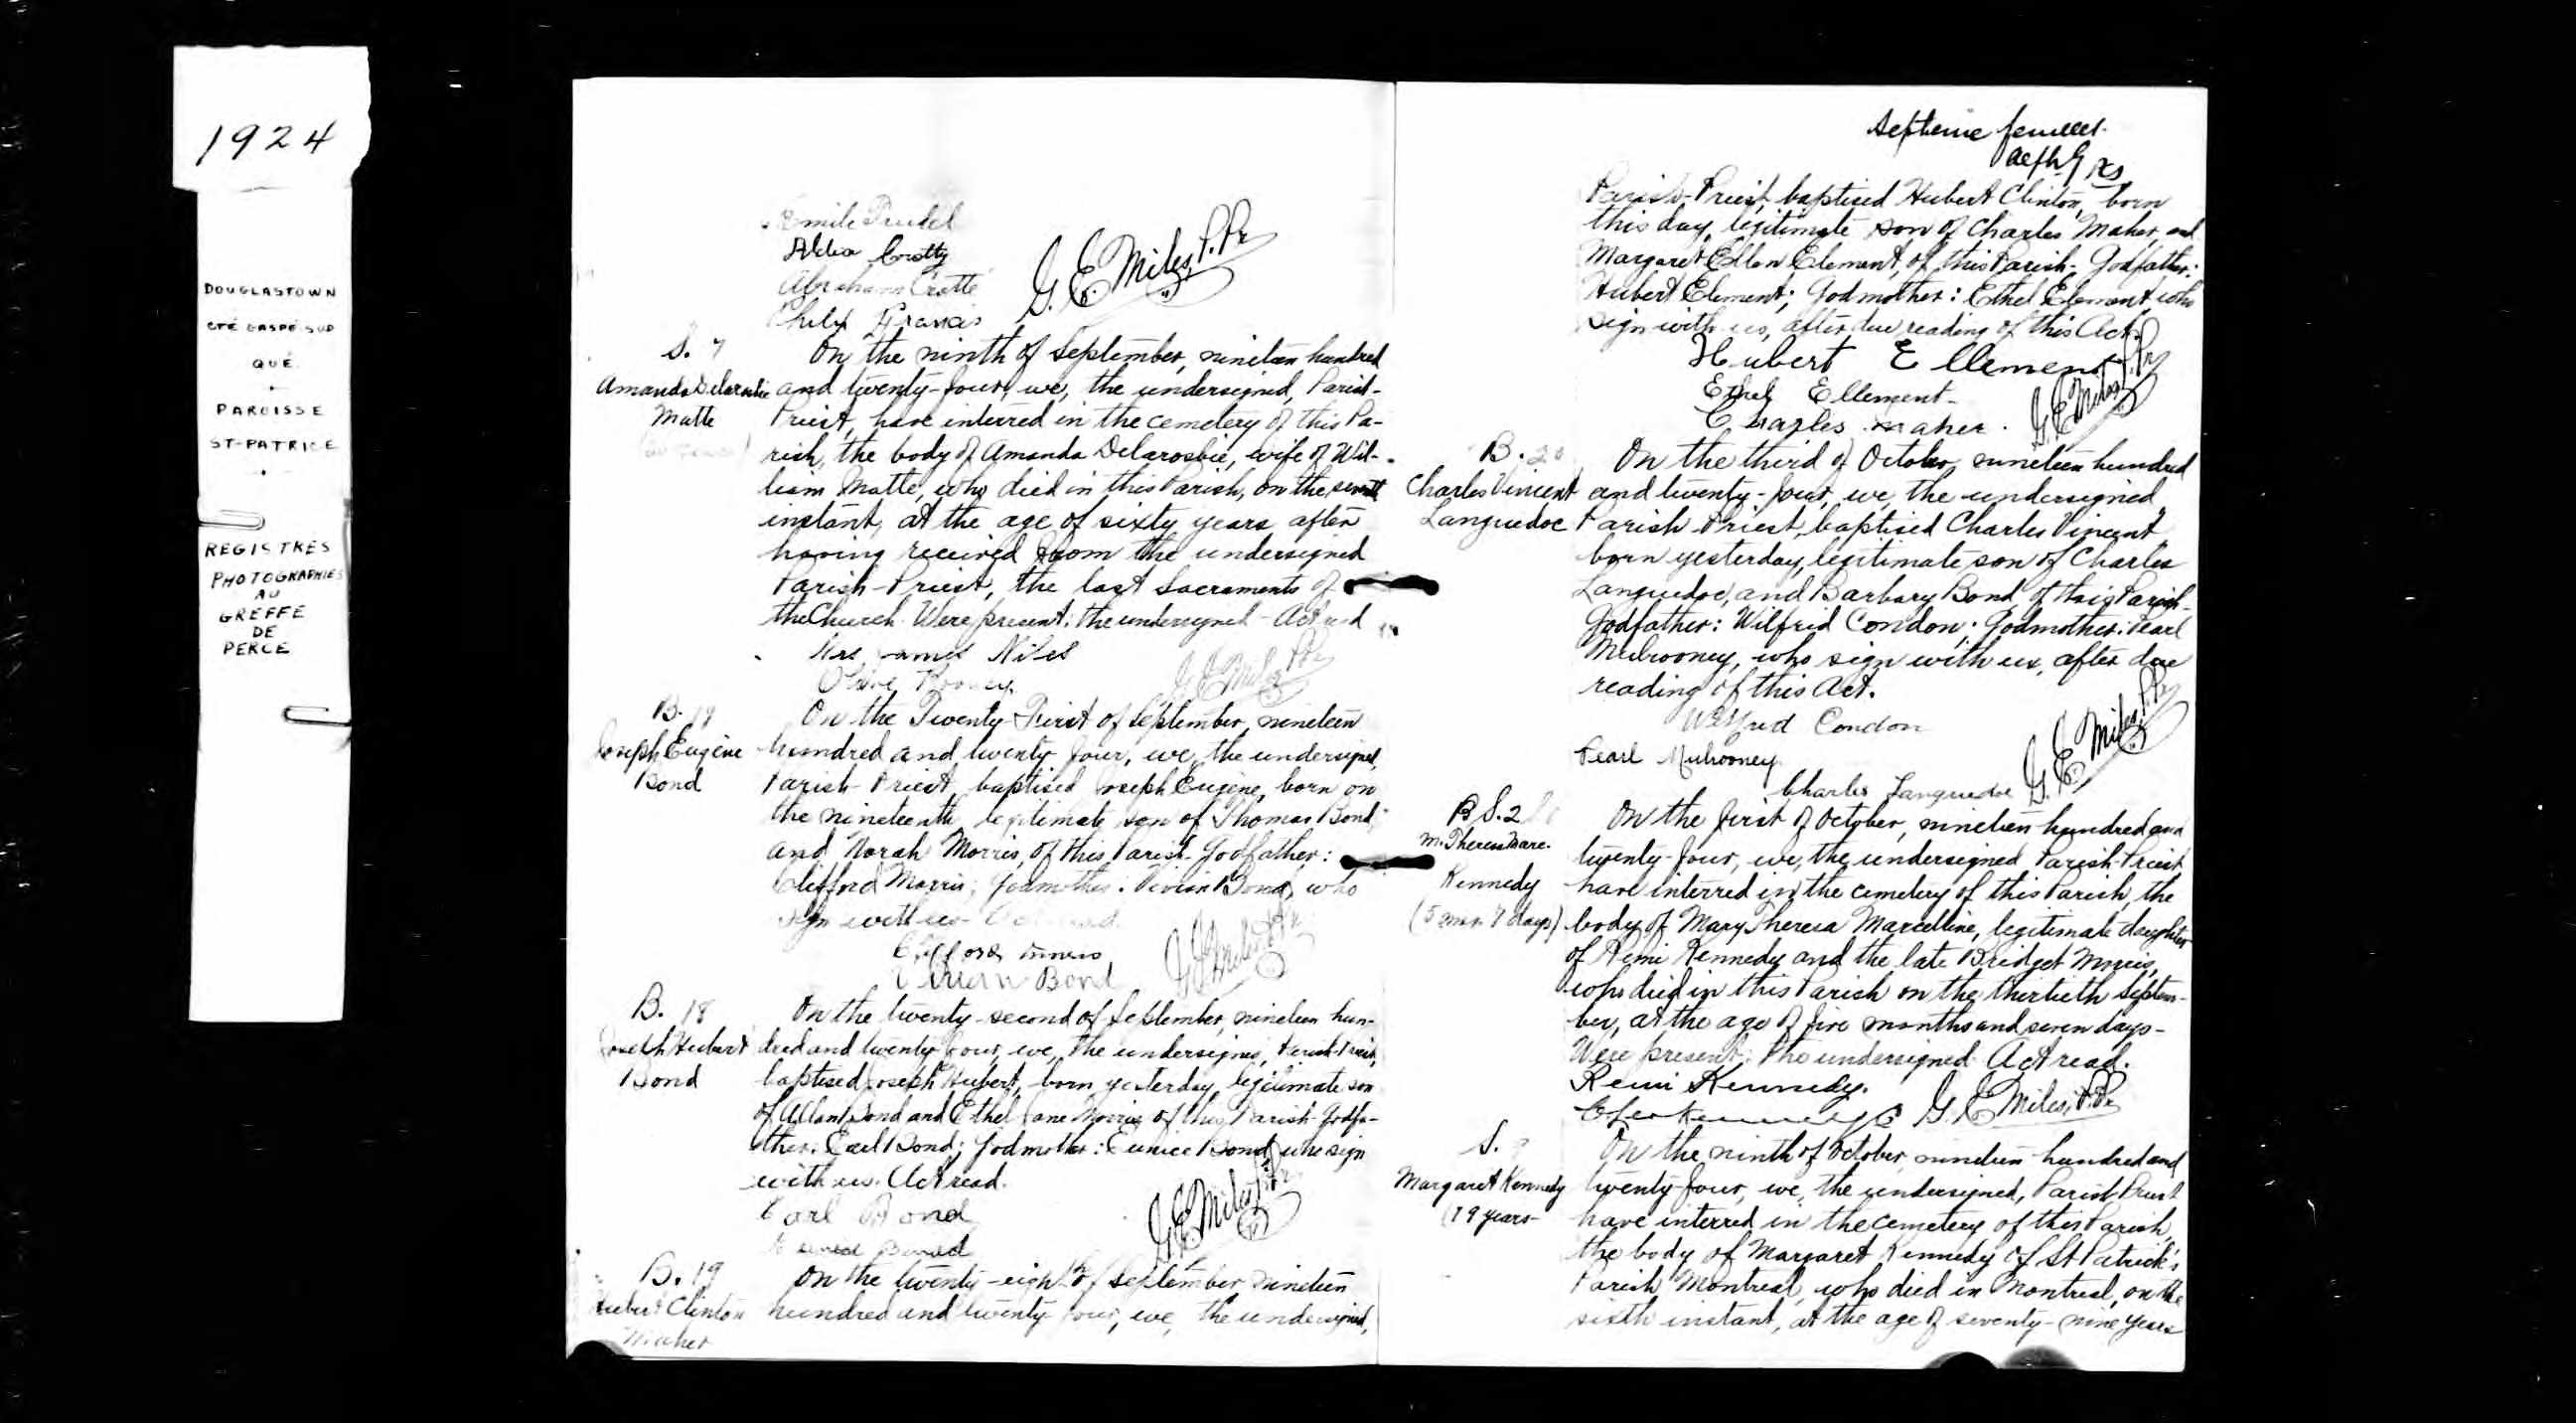 1924
DOUGLASTOWN
CTÉ GASPÉ-SUD
QUÉ.
PAROISSE
ST-PATRICE
REGISTRES
PHOTOGRAPHIÉS
AU
GREFFE
DE
PERCÉ
Emile Trudel
Crotty
Abraham Crotte
Philip Francis
G. E. Miles, P. Pr
S. 7
Amanda Delarosbie
Matte
On the ninth of September, nineteen hundred
and twenty-four, we, the undersigned, Parish-
Priest, have interred in the cemetery of this Pa-
rish, the body of Amanda Delarosbie, wife of Wil-
liam Matte, who died in this Parish, on the seventh
instant, at the age of sixty years after
having received from the undersigned
Parish-Priest, the last Sacraments of
the Church. Were present: the undersigned - Act read
Mrs James Niles
Olive Rooney
G. E. Miles P. Pr
B. 17
Joseph Eugène
Bond
On the Twenty-First of September, nineteen
hundred and twenty four, we, the undersigned,
Parish Priest, baptised Joseph Eugène, born on
the nineteenth, legitimate son of Thomas Bond
and Norah Morris, of this Parish. Godfather:
Clifford Morris; Godmother: Vivian Bond, who
sign with us
Clifford Morris
Vivian Bond
G. E. Miles P. Pr
B. 18
Joseph Hubert
Bond
On the twenty-second of September, nineteen hun-
dred and twenty four, we, the undersigned, Parish-Priest,
baptised Joseph Hubert, born yesterday, legitimate son
of Allan Bond and Ethel Jane Morris of this Parish. Godfa-
ther: Earl Bond; Godmother: Eunice Bond, who sign
with us. Act read.
Earl Bond
Eunice Bond
G. E. Miles P. Pr
B. 19
Hubert Clinton
Maher
On the twenty-eighth of September, nineteen
hundred and twenty four, we, the undersigned,
Septième feuillet.
Parish-Priest, baptised Hubert Clinton, born
this day, legitimate son of Charles Maher, and
Margaret Ellen Element, of this Parish. Godfather:
Hubert Element; Godmother: Ethel Element who
sign with us, after due reading of this Act.
Hubert Ellement
Ethel Ellement
Charles Maher.
G. E. Miles P. Pr
B. 20
Charles Vincent
Languedoc
On the third of October, nineteen hundred
and twenty-four, we, the undersigned
Parish Priest, baptised Charles Vincent,
born yesterday, legitimate son of Charles
Languedoc, and Barbary Bond of this Parish-
Godfather: Wilfrid Condon; Godmother: Pearl
Mulrooney, who sign with us, after due
reading of this Act.
Wilfrid Condon
Pearl Mulrooney
Charles Languedoc
G. E. Miles P. Pr
S.
M. Theresa Marc.
Kennedy
(5 mos. 7 days)
On the first of October, nineteen hundred and
twenty-four, we, the undersigned Parish-Priest,
have interred in the cemetery of this Parish, the
body of Mary Theresa Marcelline, legitimate daughter
of Remi Kennedy and the late Bridget Morris,
who died in this Parish on the thirtieth Septem-
ber, at the age of five months and seven days-
Were present: the undersigned. Act read.
Remi Kennedy.
G. E. Miles, P. Pr
S.
Margaret Kennedy
79 years-
On the ninth of October, nineteen-hundred and
twenty-four, we, the undersigned, Parish Priest
have interred in the cemetery of this Parish,
the body of Margaret Kennedy of St Patrick's
Parish Montreal, who died in Montreal, on the
sixth instant, at the age of seventy-nine years